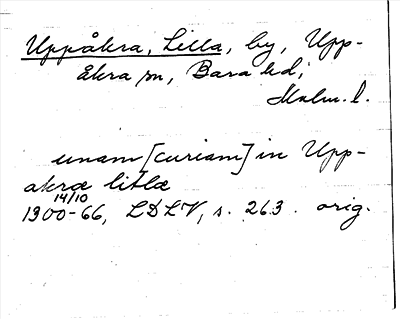 Uppåkra, Lilla, by, Upp-
åkra sn, Bara hd,
Malm. l.
unam [curiam] in Upp-
akræ litlæ
14/10
1300-66, LDLV, s. 263. orig.